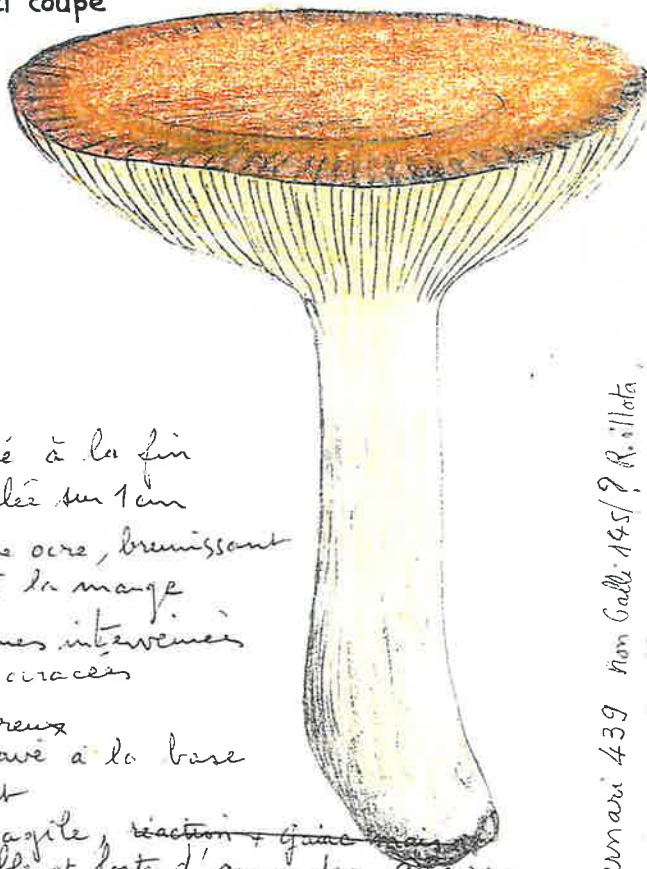 coupé
é à la fin
lée sur 1 cm
e ocre, brunissant
t la marge
nes interveinées
ciracées
reux
avé à la base
t
agile, réaction + gaïac mais
ble et forte d'
ernari 439 non Galli 145/? R. illota